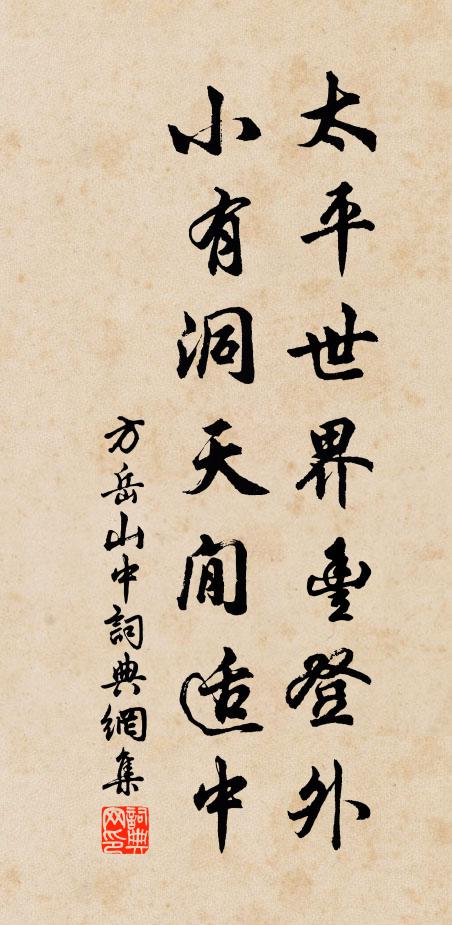 太平世界豐登外
小有洞天閒适中
方岳山中詞典網集
詞典網印